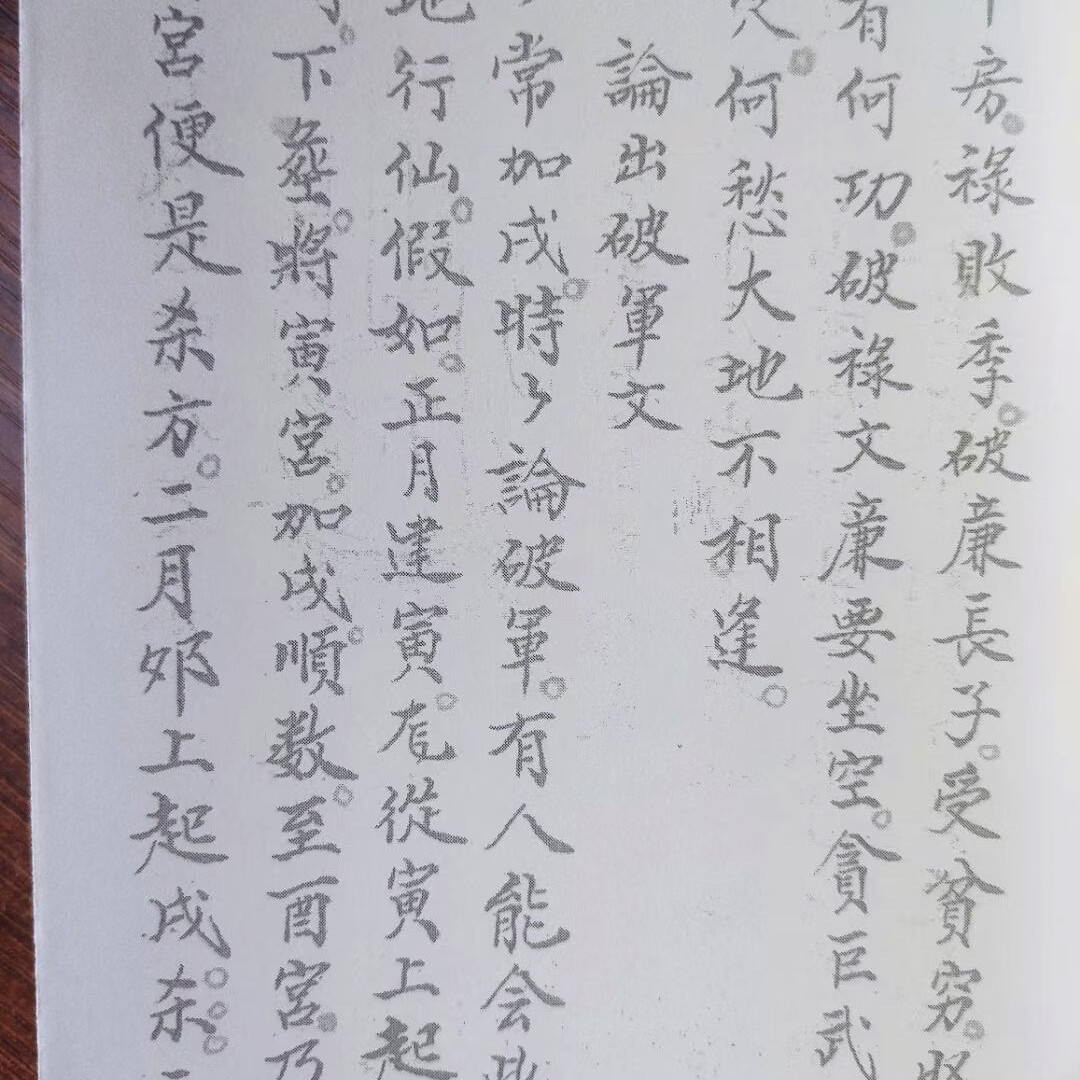 房。祿敗季。破廉長子。受貧穷。
有何功。破祿文廉要坐空。貪巨武
穴。何愁大地不相逢。
論出破軍文
常加戌。時〻論破軍。有人能会
地行仙。假如。正月建寅。从寅上起
下塟。將寅宮。加戌。順数。至酉宮。乃
宮便是杀方。二月夘上起戌。杀。